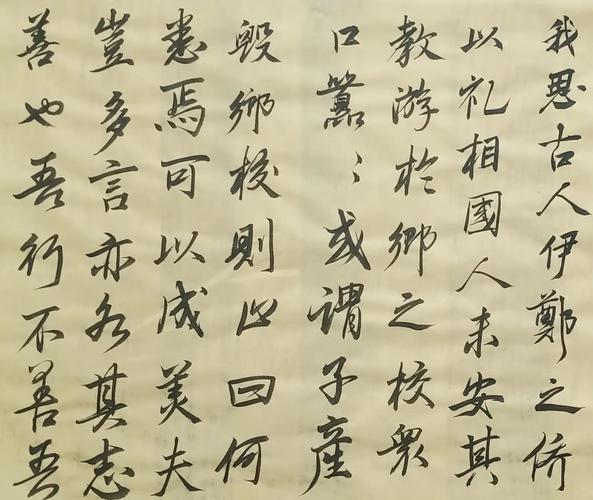 我思古人伊鄭之侨
以礼相國人未安其
教游於鄉之校衆
口嚣〻或謂子產
毀鄉校則止曰何
患焉可以成美夫
豈多言亦各其志
善也吾行不善吾